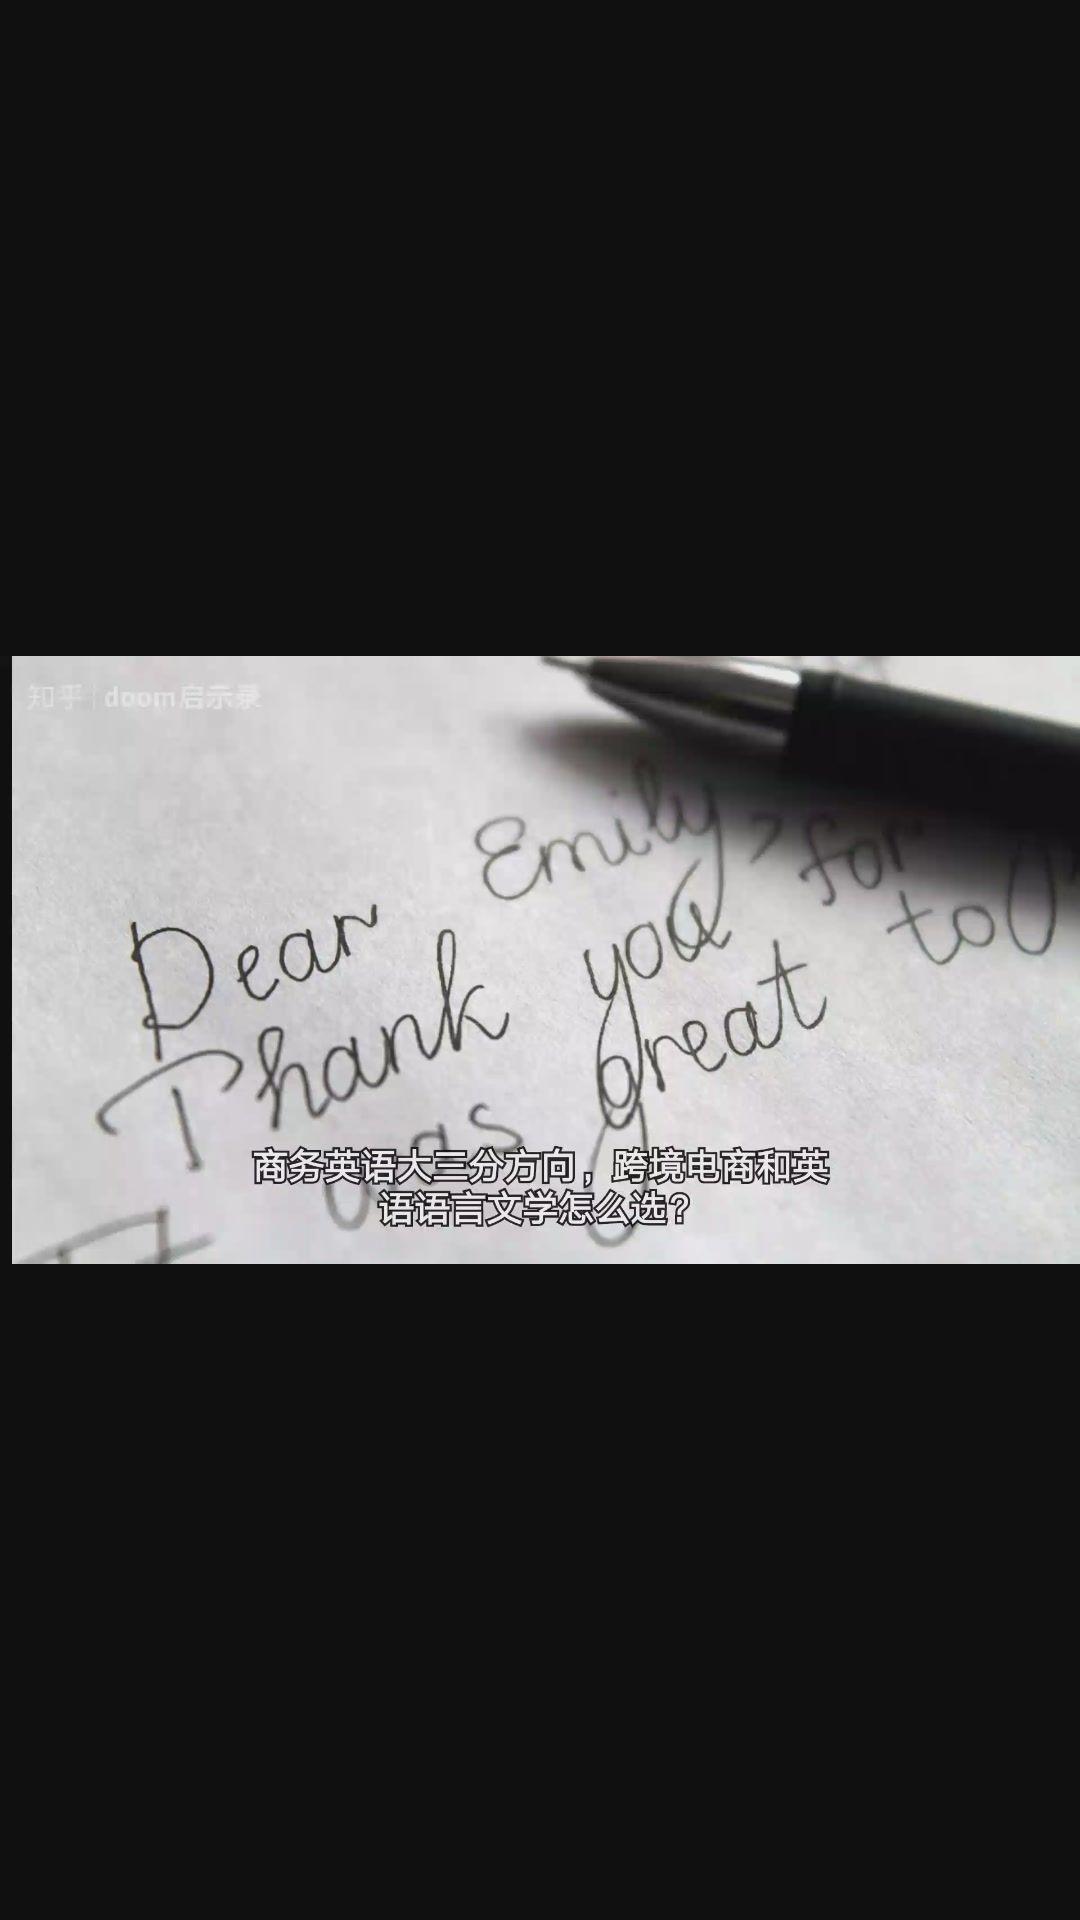 知乎 | doom启示录
Dear Emily, for
Thank you to
was great
商务英语大三分方向，跨境电商和英
语语言文学怎么选？